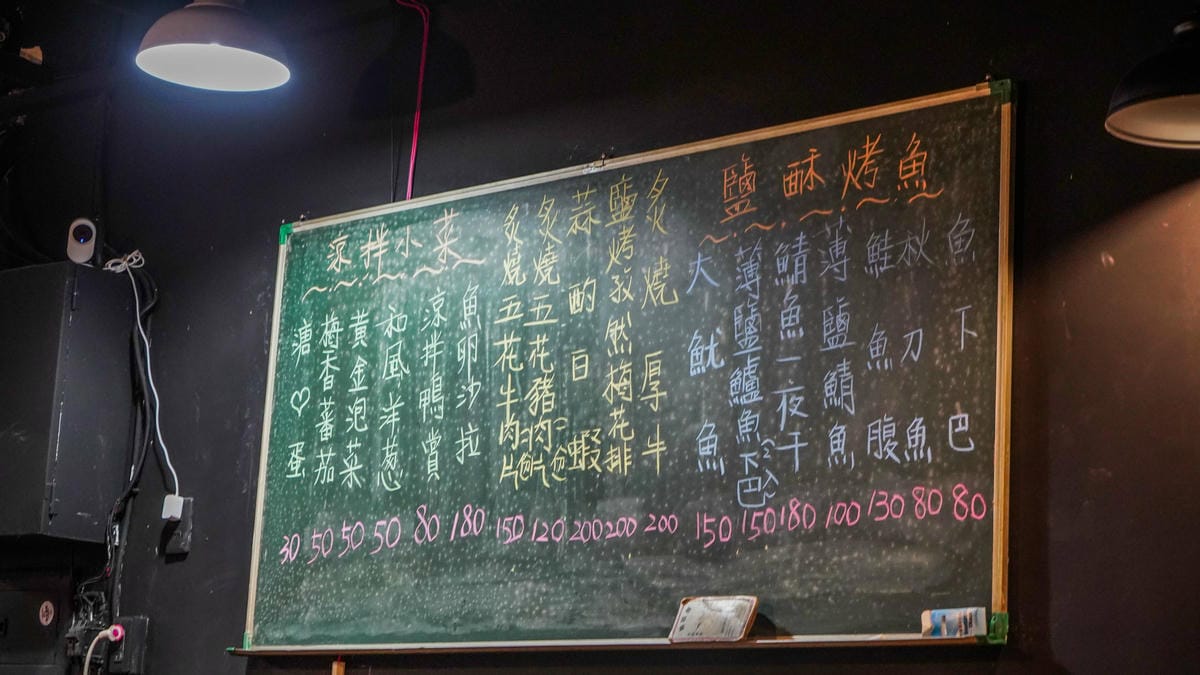 鹽酥烤魚
魚下巴 80
秋刀魚 80
鮭魚腹 130
薄鹽鯖魚 100
鯖魚一夜干 180
薄鹽鱸魚下巴(2入) 150
大魷魚 150
炙燒厚牛 200
鹽烤孜然梅花排 200
蒜酌白蝦 200
炙燒五花豬肉片 120
炙燒五花牛肉片 150
涼拌小菜
魚卵沙拉 180
涼拌鴨賞 80
和風洋蔥 50
黃金泡菜 50
梅香蕃茄 50
溏♡蛋 30